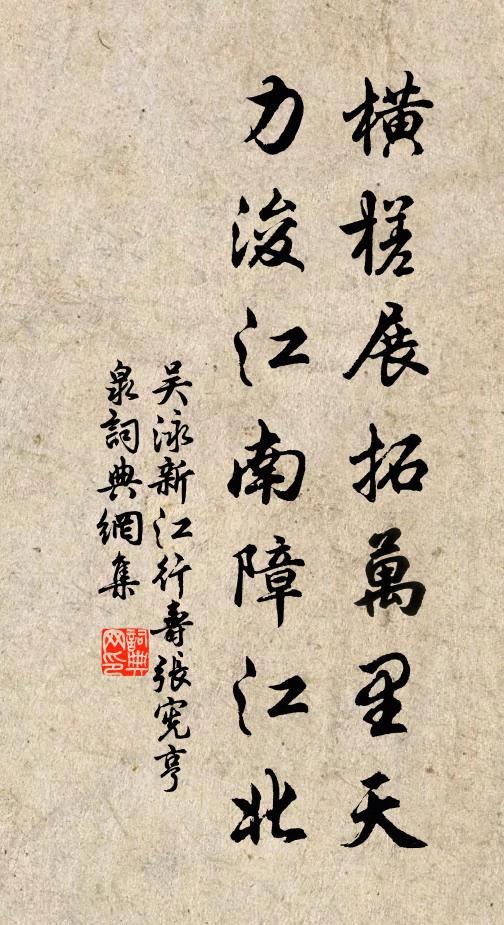 橫槎展拓萬里天
力浚江南障江北
吴泳新江行壽張憲亨
泉詞典網集
詞典網印